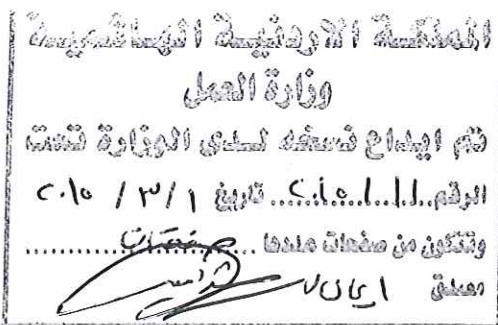 المملكة الاردنية الهاشمية
وزارة العمل
تم ايداع نسخه لدى الوزارة تحت
الرقم ........ تاريخ ١ / ٣ / ٢٠١٥
وتتكون من صفحات عددها ........ صفحات
ايمان